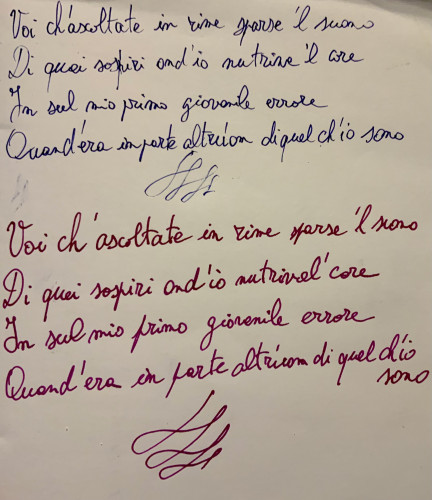 Voi ch'ascoltate in rime sparse 'l suono
Di quei sospiri ond'io nutriva 'l core
In sul mio primo giovenile errore
Quand'era in parte altr'uom di quel ch'io sono
Voi ch'ascoltate in rime sparse 'l suono
Di quei sospiri ond'io nutriva l'core
In sul mio primo giovenile errore
Quand'era in parte altr'uom di quel ch'io
sono